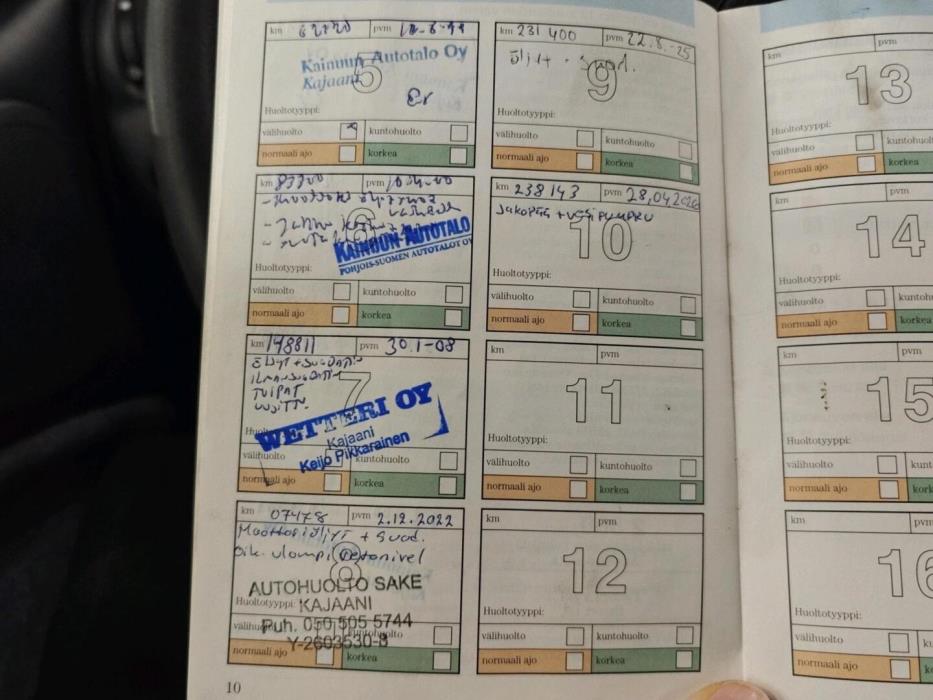 km 62220 pvm
Kainuun Autotalo Oy
Kajaani
5
Huoltotyyppi:
välihuolto x kuntohuolto
normaali ajo korkea
km 83200 pvm 10.4-00
6
KAINUUN-AUTOTALO
POHJOIS-SUOMEN AUTOTALOT OY
Huoltotyyppi:
välihuolto kuntohuolto
normaali ajo korkea
km 148811 pvm 30.1-08
TULPAT
7
WETTERI OY
Kajaani
Keijo Pikkarainen
välihuolto kuntohuolto
normaali ajo korkea
km 07478 pvm 2.12.2022
Moottoriöljyt + suod.
oik. ulompi vetonivel
8
AUTOHUOLTO SAKE
Huoltotyyppi: KAJAANI
Puh. 050 505 5744
Y-2603530-8
välihuolto kuntohuolto
normaali ajo korkea
10
km 231 400 pvm 22.8.-25
Öljyt + suod.
9
Huoltotyyppi:
välihuolto kuntohuolto
normaali ajo korkea
km 238143 pvm 28,04.2026
JAKOPÄÄ + VESIPUMPPU
10
Huoltotyyppi:
välihuolto kuntohuolto
normaali ajo korkea
km pvm
11
Huoltotyyppi:
välihuolto kuntohuolto
normaali ajo korkea
km pvm
12
Huoltotyyppi:
välihuolto kuntohuolto
normaali ajo korkea
km pvm
13
Huoltotyyppi:
välihuolto kuntohuol
normaali ajo korkea
km pvm
14
Huoltotyyppi:
välihuolto kuntohu
normaali ajo korkea
km pvm
15
Huoltotyyppi:
välihuolto kunt
normaali ajo kork
km pvm
16
Huoltotyyppi:
välihuolto ku
normaali ajo k